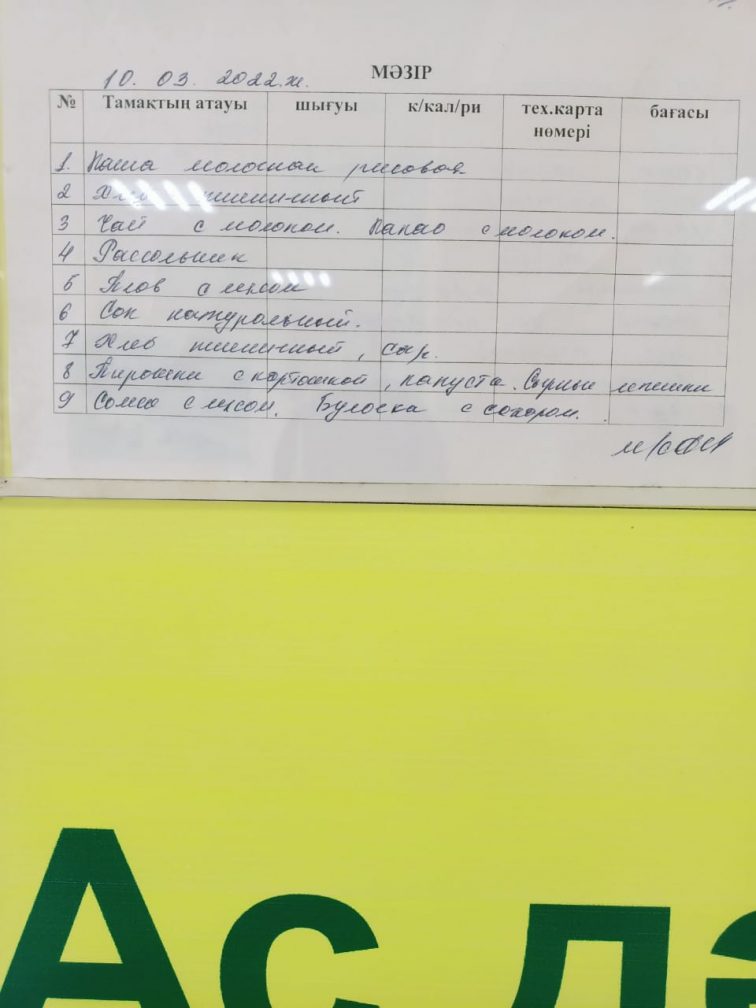 10. 03. 2022.ж.
МӘЗІР
№ Тамақтың атауы шығуы к/кал/ри тех.карта нөмері бағасы
1. Каша молочная рисовая
2 Хлеб пшеничный
3 Чай с молоком. Какао с молоком.
4 Рассольник
5 Плов с мясом
6 Сок натуральный.
7 Хлеб пшеничный, сыр.
8 Пирошки с картошкой, капуста. Сырные лепешки
9 Сомса с мясом. Булочка с сахаром.
Ас да